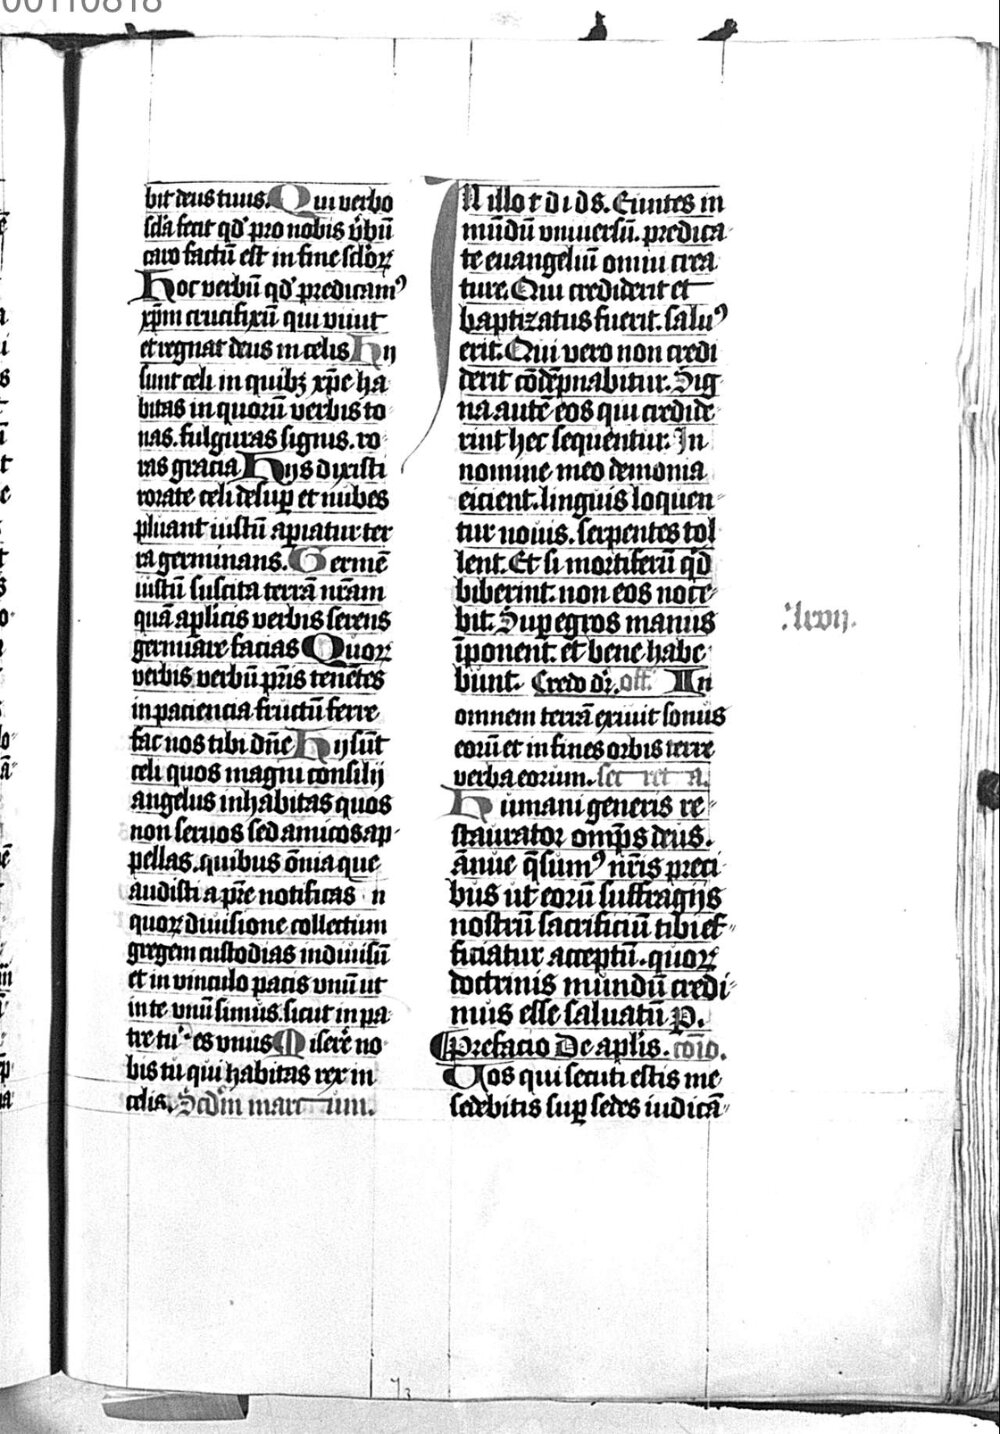 00110818
bit deus tuus. Qui verbo
sc̄la fecit qd' pro nobis v̓bū
caro factū est in fine sc̄lorꝝ
Hoc verbū qd' predicam᾽
xp̄m crucifixū qui viuit
et regnat deus in celis Hij
sunt celi in quibꝫ xp̄e ha
bitas in quorū verbis to
nas. fulguras signis. ro
ras gracia Hijs dixisti
rorate celi desuꝑ et nubes
pluant iustū aꝑiatur ter
ra germinans. Germē
iustū suscita terrā nr̄am
quā apl'icis verbis serens
germinare facias Quorꝝ
verbis verbū pr̄is tenētes
in paciencia fructū ferre
fac nos tibi dn̄e Hij sūt
celi quos magni consilij
angelus inhabitas quos
non seruos sed amicos ap
pellas. quibus ōnia que
audisti a pr̄e notificas n
quorꝝ diuisione collectum
gregem custodias indiuisū
et in vinculo pacis vnū ut
in te vnū simus. sicut in pa
tre tu es vnus Miserē no
bis tu qui habitas rex in
celis. Scd'm marcum.
IN illo t di ds. Euntes in
mūdū vniuersū. predica
te euangeliū omni crea
ture. Qui crediderit et
baptizatus fuerit. salu᾽
erit. Qui vero non credi
derit cōdēpnabitur. Sig
na autē eos qui credide
rint hec sequentur. In
nomine meo demonia
eicient. linguis loquen
tur nouis. serpentes tol
lent. Et si mortiferū qd
biberint. non eos noce
bit. Suꝑ egros manus
īponent. et bene habe
bunt. Credo dr̄. off. In
omnem terrā exiuit sonus
eorū et in fines orbis terre
verba eorum. secreta.
Humani generis re
staurator omp̄s deus.
ānue q̄sum᾽ nr̄is preci
bus ut eorū suffragijs
nostrū sacrificiū tibi ef
ficiatur acceptū. quorꝝ
doctrinis mundū credi
nuis esse saluatū P.
Prefacio De apl'is. cōio.
Uos qui secuti estis me
sedebitis suꝑ sedes iudicā
lxvij.
73